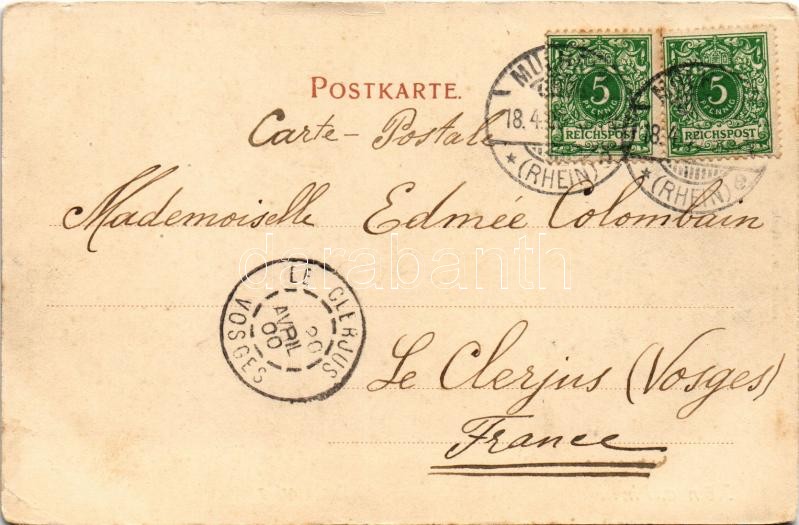 POSTKARTE.
Carte-Postale
5
PFENNIG
REICHSPOST
5
PFENNIG
REICHSPOST
18.4.
(RHEIN)
18.4.
(RHEIN) e
Mademoiselle Edmée Colombain
darabanth
LE CLERJUS
20
AVRIL
00
VOSGES
Le Clerjus (Vosges)
France